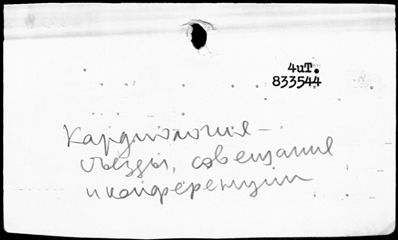 4иТ.
833544
Кардиология –
съезды, совещания
и конференции